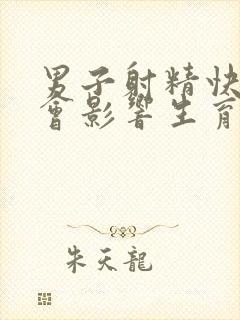 男子射精快
會影響生育
朱天龍